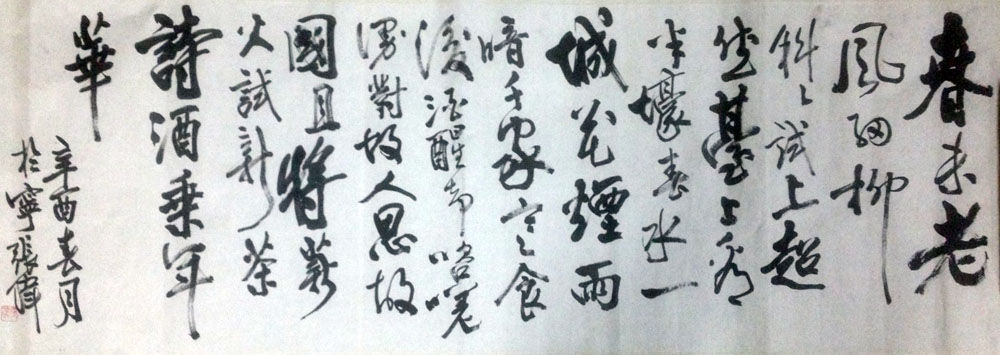 春未老
風細柳
斜〻試上超
然臺上看
半壕春水一
城花煙雨
暗千家寒食
後酒醒却咨嗟
對故人思故
國且將薪
火試新茶
詩酒乘年
華
辛酉春月
於寧張偉